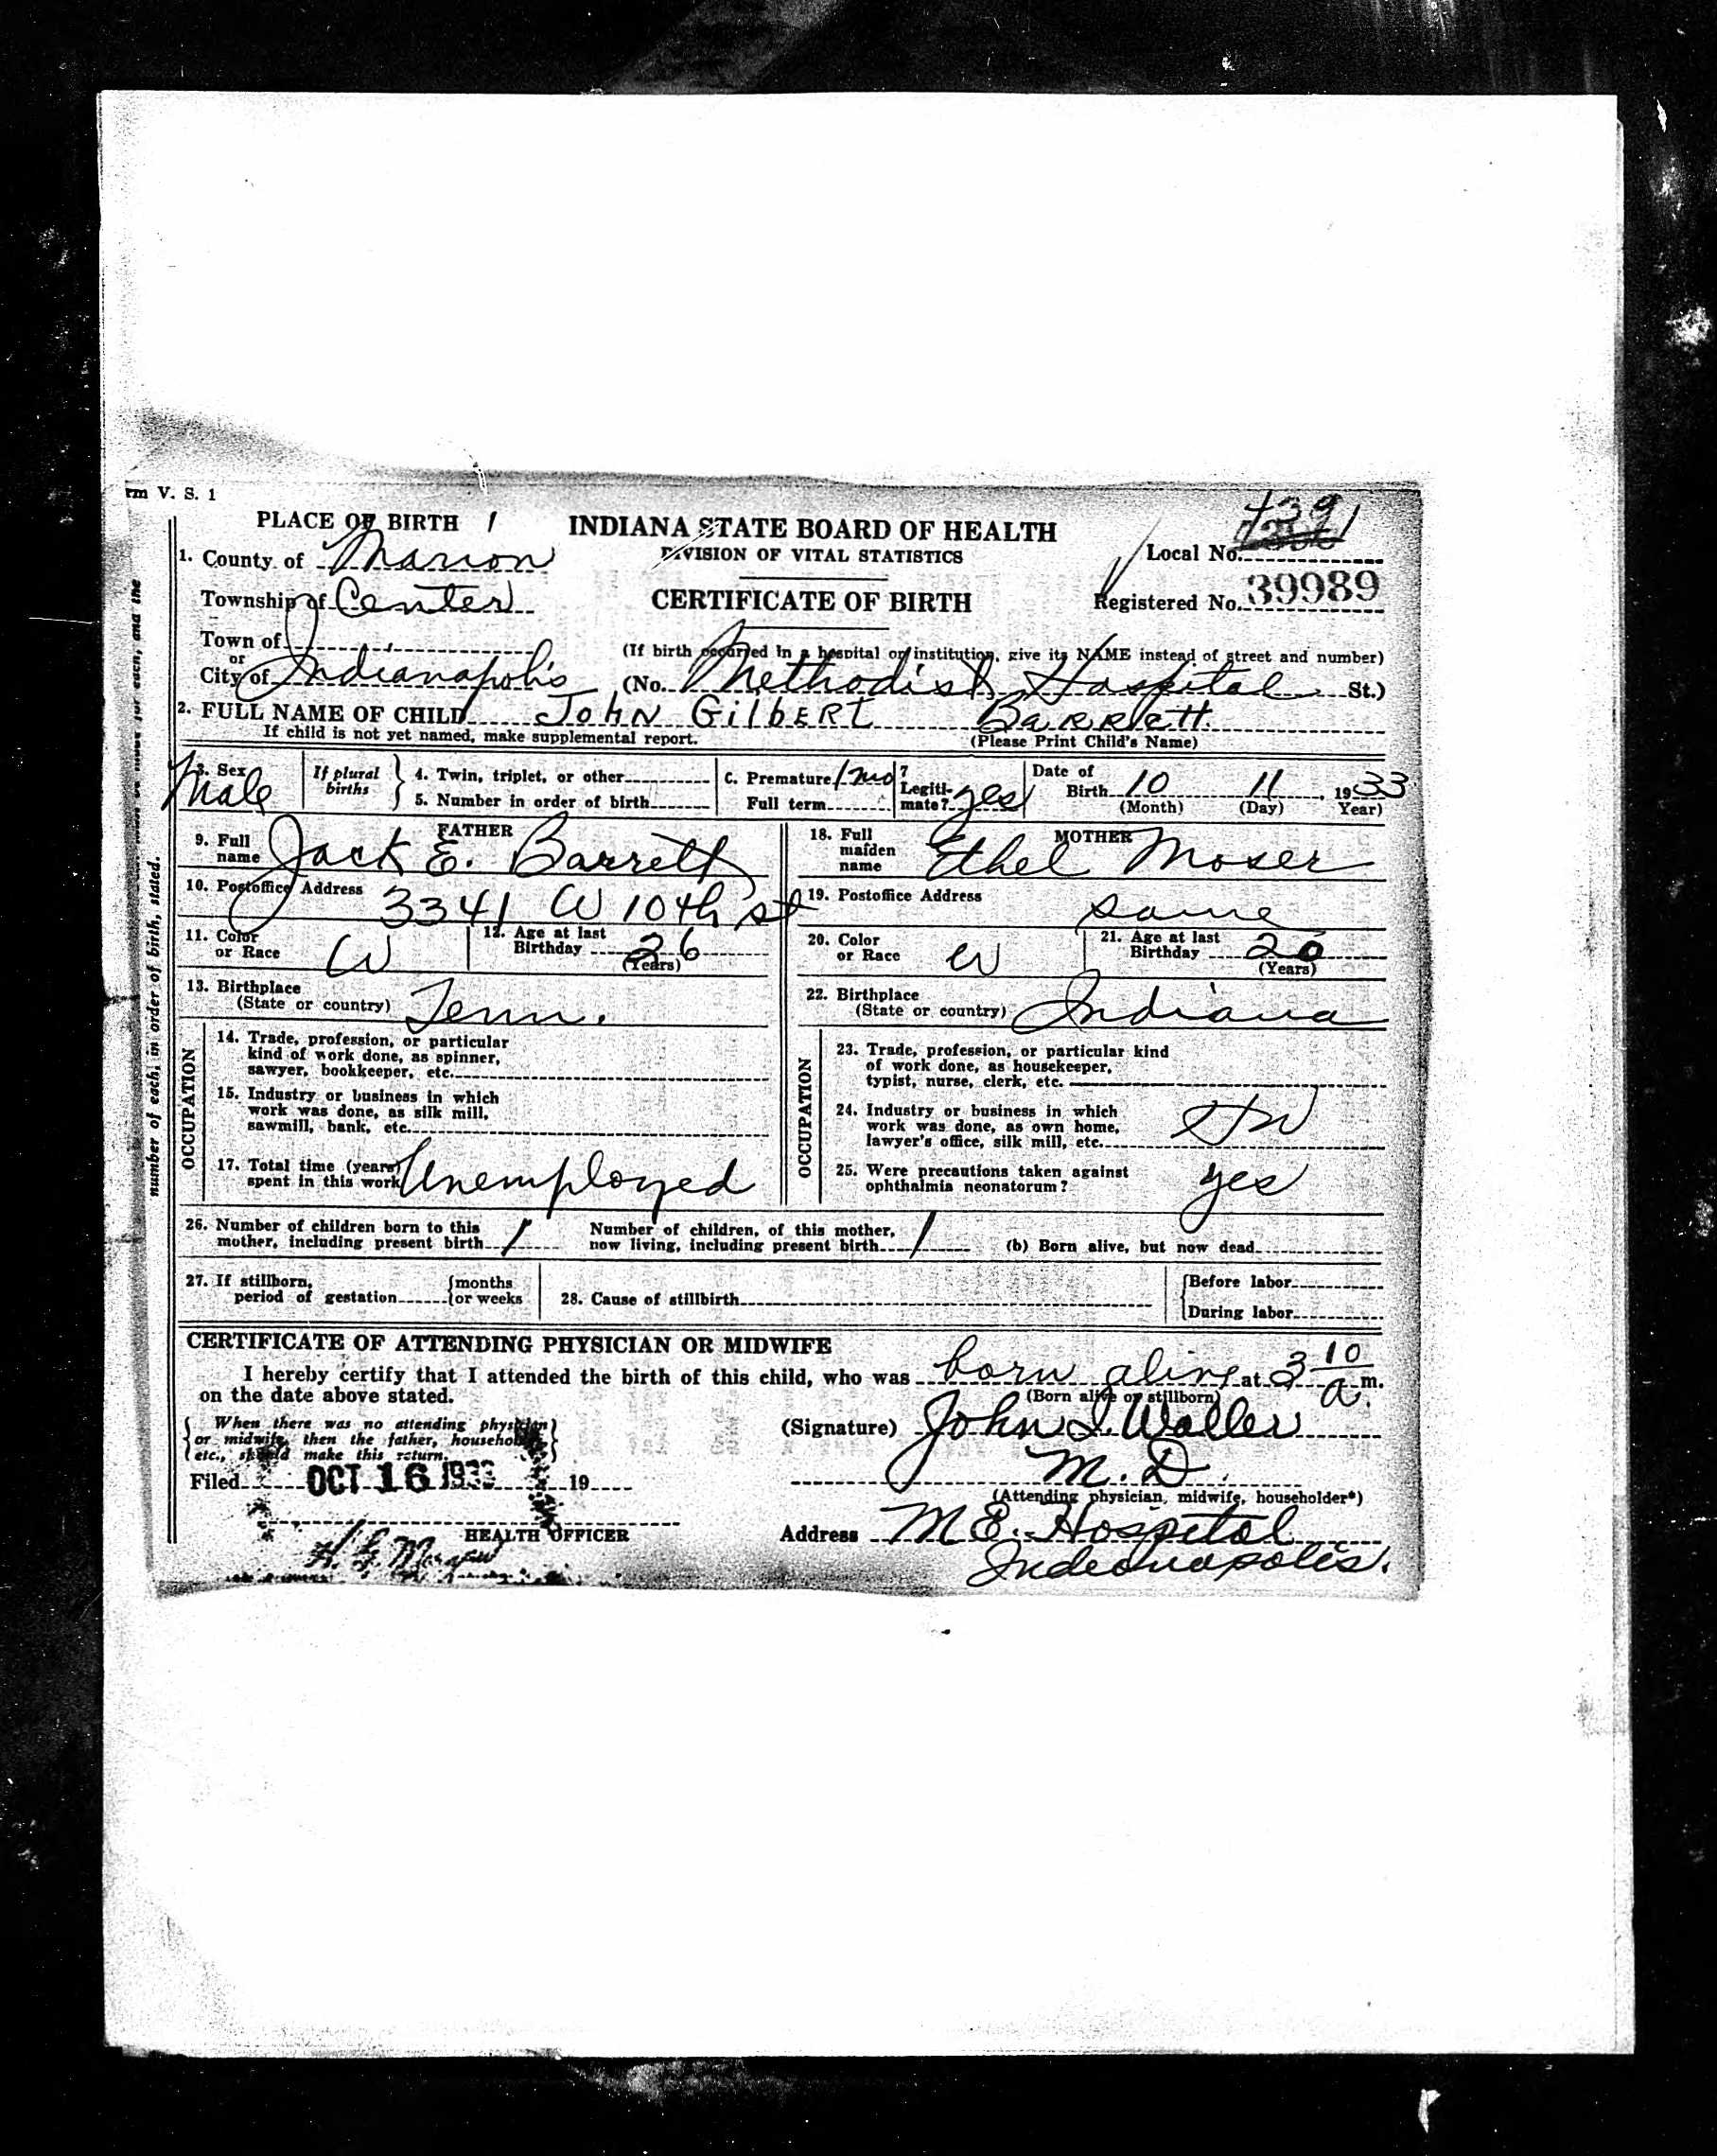 rm V. S. 1
PLACE OF BIRTH 1
INDIANA STATE BOARD OF HEALTH
DIVISION OF VITAL STATISTICS
CERTIFICATE OF BIRTH
Local No. 4391
Registered No. 39989
1. County of Marion
Township of Center
Town of
or
City of Indianapolis
(If birth occurred in a hospital or institution, give its NAME instead of street and number)
(No. Methodist Hospital St.)
2. FULL NAME OF CHILD JOHN GILBERT BARRETT.
If child is not yet named, make supplemental report.
(Please Print Child's Name)
3. Sex Male
If plural births
4. Twin, triplet, or other
5. Number in order of birth
C. Premature 1 mo
Full term
7 Legiti-mate? yes
Date of Birth 10 11, 1933
(Month) (Day) Year)
FATHER
9. Full name Jack E. Barrett
10. Postoffice Address 3341 W 10th st
11. Color or Race W
12. Age at last Birthday 26
(Years)
13. Birthplace
(State or country) Tenn.
OCCUPATION
14. Trade, profession, or particular
kind of work done, as spinner,
sawyer, bookkeeper, etc.
15. Industry or business in which
work was done, as silk mill,
sawmill, bank, etc.
17. Total time (years)
spent in this work Unemployed
MOTHER
18. Full maiden name Ethel Moser
19. Postoffice Address same
20. Color or Race W
21. Age at last Birthday 20
(Years)
22. Birthplace
(State or country) Indiana
OCCUPATION
23. Trade, profession, or particular kind
of work done, as housekeeper,
typist, nurse, clerk, etc.
24. Industry or business in which
work was done, as own home,
lawyer's office, silk mill, etc. HW
25. Were precautions taken against
ophthalmia neonatorum? yes
26. Number of children born to this
mother, including present birth 1
Number of children, of this mother,
now living, including present birth 1
(b) Born alive, but now dead
27. If stillborn,
period of gestation {months
or weeks
28. Cause of stillbirth
{Before labor
During labor
CERTIFICATE OF ATTENDING PHYSICIAN OR MIDWIFE
I hereby certify that I attended the birth of this child, who was born alive at 3 10 a. m.
(Born alive or stillborn)
on the date above stated.
{When there was no attending physician)
or midwife, then the father, householder
etc., should make this return.}
(Signature) John I. Waller
M. D.
(Attending physician, midwife, householder*)
Filed OCT 16 1933 19
HEALTH OFFICER
Address M E. Hospital
Indianapolis.
number of each, in order of birth, stated.